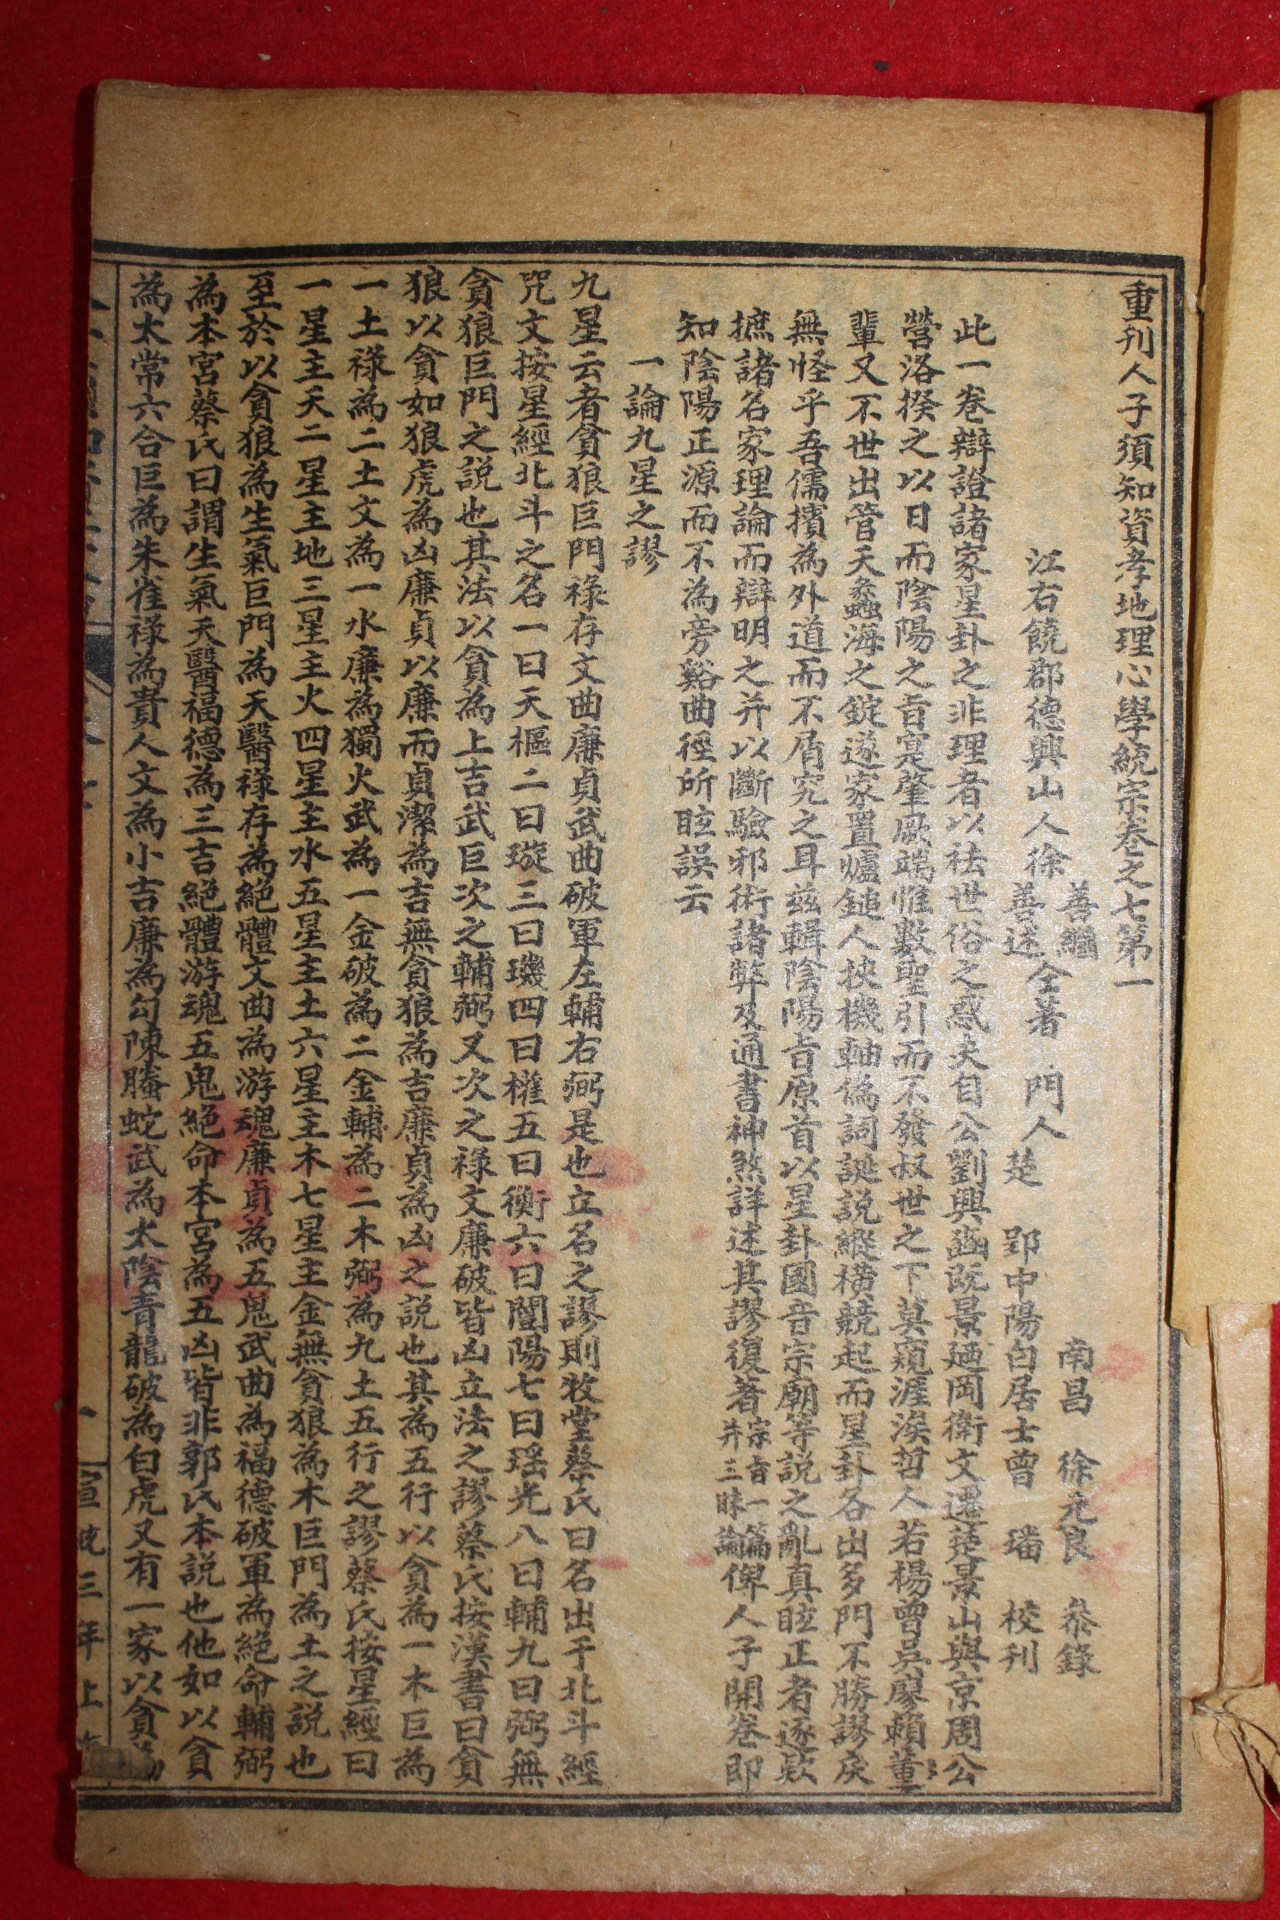 重刊人子須知資孝地理心學統宗卷之七第一
江右饒郡德興山人徐善繼善述仝著 門人 南昌 徐克良 叅錄
楚 郢中陽白居士曾 璠 校刊
此一卷辯證諸家星卦之非理者以祛世俗之惑夫自公劉興豳既景廼岡衛文遷楚景山與京周公
營洛揆之以日而陰陽之旨寔肇厥端惟數聖引而不發叔世之下莫窺涯涘哲人若楊曾吳廖賴董
輩又不世出管天蠡海之錠遂家置爐鎚人挾機軸偽詞誕説縱橫競起而星卦各出多門不勝謬戾
無怪乎吾儒擯為外道而不屑究之耳兹輯陰陽旨原首以星卦國音宗廟等説之亂真眩正者逐欵
摭諸名家理論而辯明之并以斷驗邪術諸弊及通書神煞詳述其謬復著宗旨一篇并三昧論俾人子開卷即
知陰陽正源而不為旁谿曲徑所眩誤云
一論九星之謬
九星云者貪狼巨門祿存文曲廉貞武曲破軍左輔右弼是也立名之謬則牧堂蔡氏曰名出于北斗經
咒文按星經北斗之名一曰天樞二曰璇三曰璣四曰權五曰衡六曰闓陽七曰瑶光八曰輔九曰弼無
貪狼巨門之説也其法以貪為上吉武巨次之輔弼又次之祿文廉破皆凶立法之謬蔡氏按漢書曰貪
狼以貪如狼虎為凶廉貞以廉而貞潔為吉無貪狼為吉廉貞為凶之説也其為五行以貪為一木巨為
一土祿為二土文為一水廉為獨火武為一金破為二金輔為二木弼為九土五行之謬蔡氏按星經曰
一星主天二星主地三星主火四星主水五星主土六星主木七星主金無貪狼為木巨門為土之説也
至於以貪狼為生氣巨門為天醫祿存為絕體文曲為游魂廉貞為五鬼武曲為福德破軍為絕命輔弼
為本宮蔡氏曰謂生氣天醫福德為三吉絕體游魂五鬼絕命本宮為五凶皆非郭氏本説也他如以貪
為太常六合巨為朱雀祿為貴人文為小吉廉為勾陳螣蛇武為太陰青龍破為白虎又有一家以貪為
一 宣統三年上